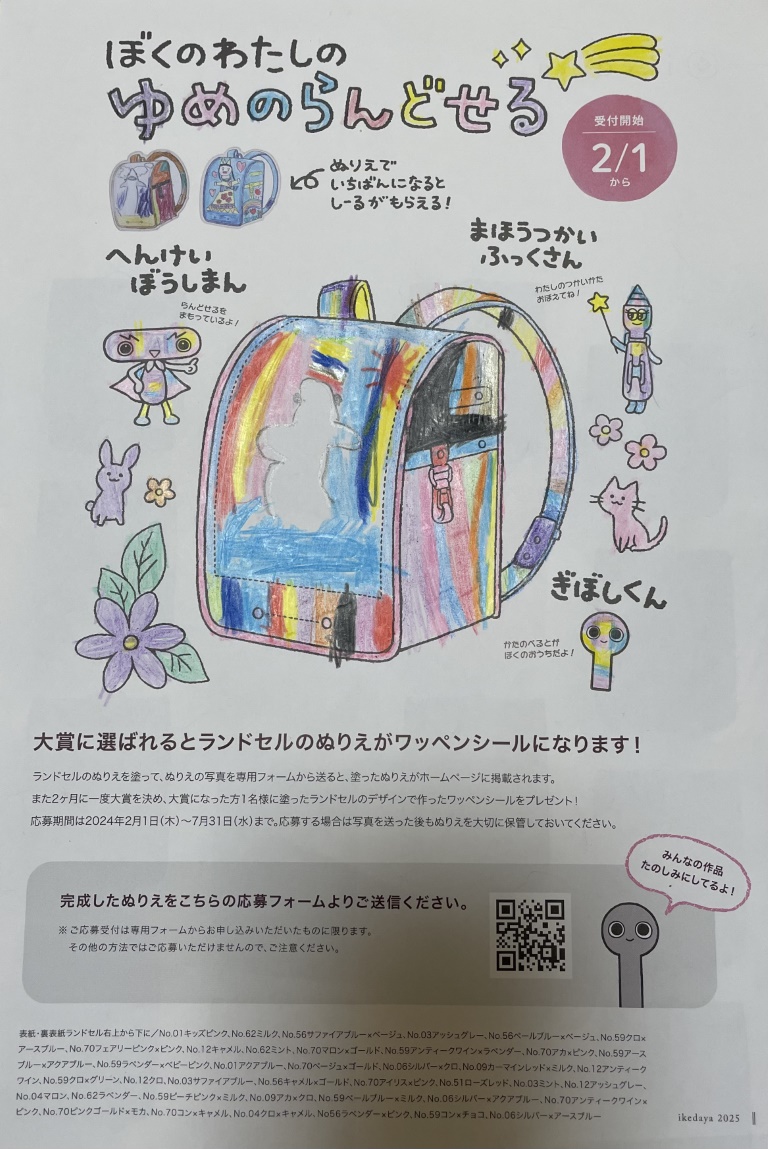 ぼくのわたしの
ゆめのらんどせる
受付開始
2/1
から
ぬりえで
いちばんになると
しーるがもらえる!
へんけい
ぼうしまん
らんどせるを
まもっているよ!
まほうつかい
ふっくさん
わたしのつかいかた
おぼえてね!
ぎぼしくん
かたのべるとが
ぼくのおうちだよ!
大賞に選ばれるとランドセルのぬりえがワッペンシールになります!
ランドセルのぬりえを塗って、ぬりえの写真を専用フォームから送ると、塗ったぬりえがホームページに掲載されます。
また2ヶ月に一度大賞を決め、大賞になった方1名様に塗ったランドセルのデザインで作ったワッペンシールをプレゼント!
応募期間は2024年2月1日(木)~7月31日(水)まで。応募する場合は写真を送った後もぬりえを大切に保管しておいてください。
みんなの作品
たのしみにしてるよ!
完成したぬりえをこちらの応募フォームよりご送信ください。
※ご応募受付は専用フォームからお申し込みいただいたものに限ります。
その他の方法ではご応募いただけませんので、ご注意ください。
表紙・裏表紙ランドセル右上から下に/No.01キッズピンク、No.62ミルク、No.56サファイアブルー×ベージュ、No.03アッシュグレー、No.56ペールブルー×ベージュ、No.59クロ×
アースブルー、No.70フェアリーピンク×ピンク、No.12キャメル、No.62ミント、No.70マロン×ゴールド、No.59アンティークワイン×ラベンダー、No.70アカ×ピンク、No.59アース
ブルー×アクアブルー、No.59ラベンダー×ベビーピンク、No.01アクアブルー、No.70ベージュ×ゴールド、No.06シルバー×クロ、No.09カーマインレッド×ミルク、No.12アンティーク
ワイン、No.59クロ×グリーン、No.12クロ、No.03サファイアブルー、No.56キャメル×ゴールド、No.70アイリス×ピンク、No.51ローズレッド、No.03ミント、No.12アッシュグレー、
No.04マロン、No.62ラベンダー、No.59ピーチピンク×ミルク、No.09アカ×クロ、No.59ペールブルー×ミルク、No.06シルバー×アクアブルー、No.70アンティークワイン×
ピンク、No.70ピンクゴールド×モカ、No.70コン×キャメル、No.04クロ×キャメル、No56ラベンダー×ピンク、No.59コン×チョコ、No.06シルバー×アースブルー
ikedaya 2025